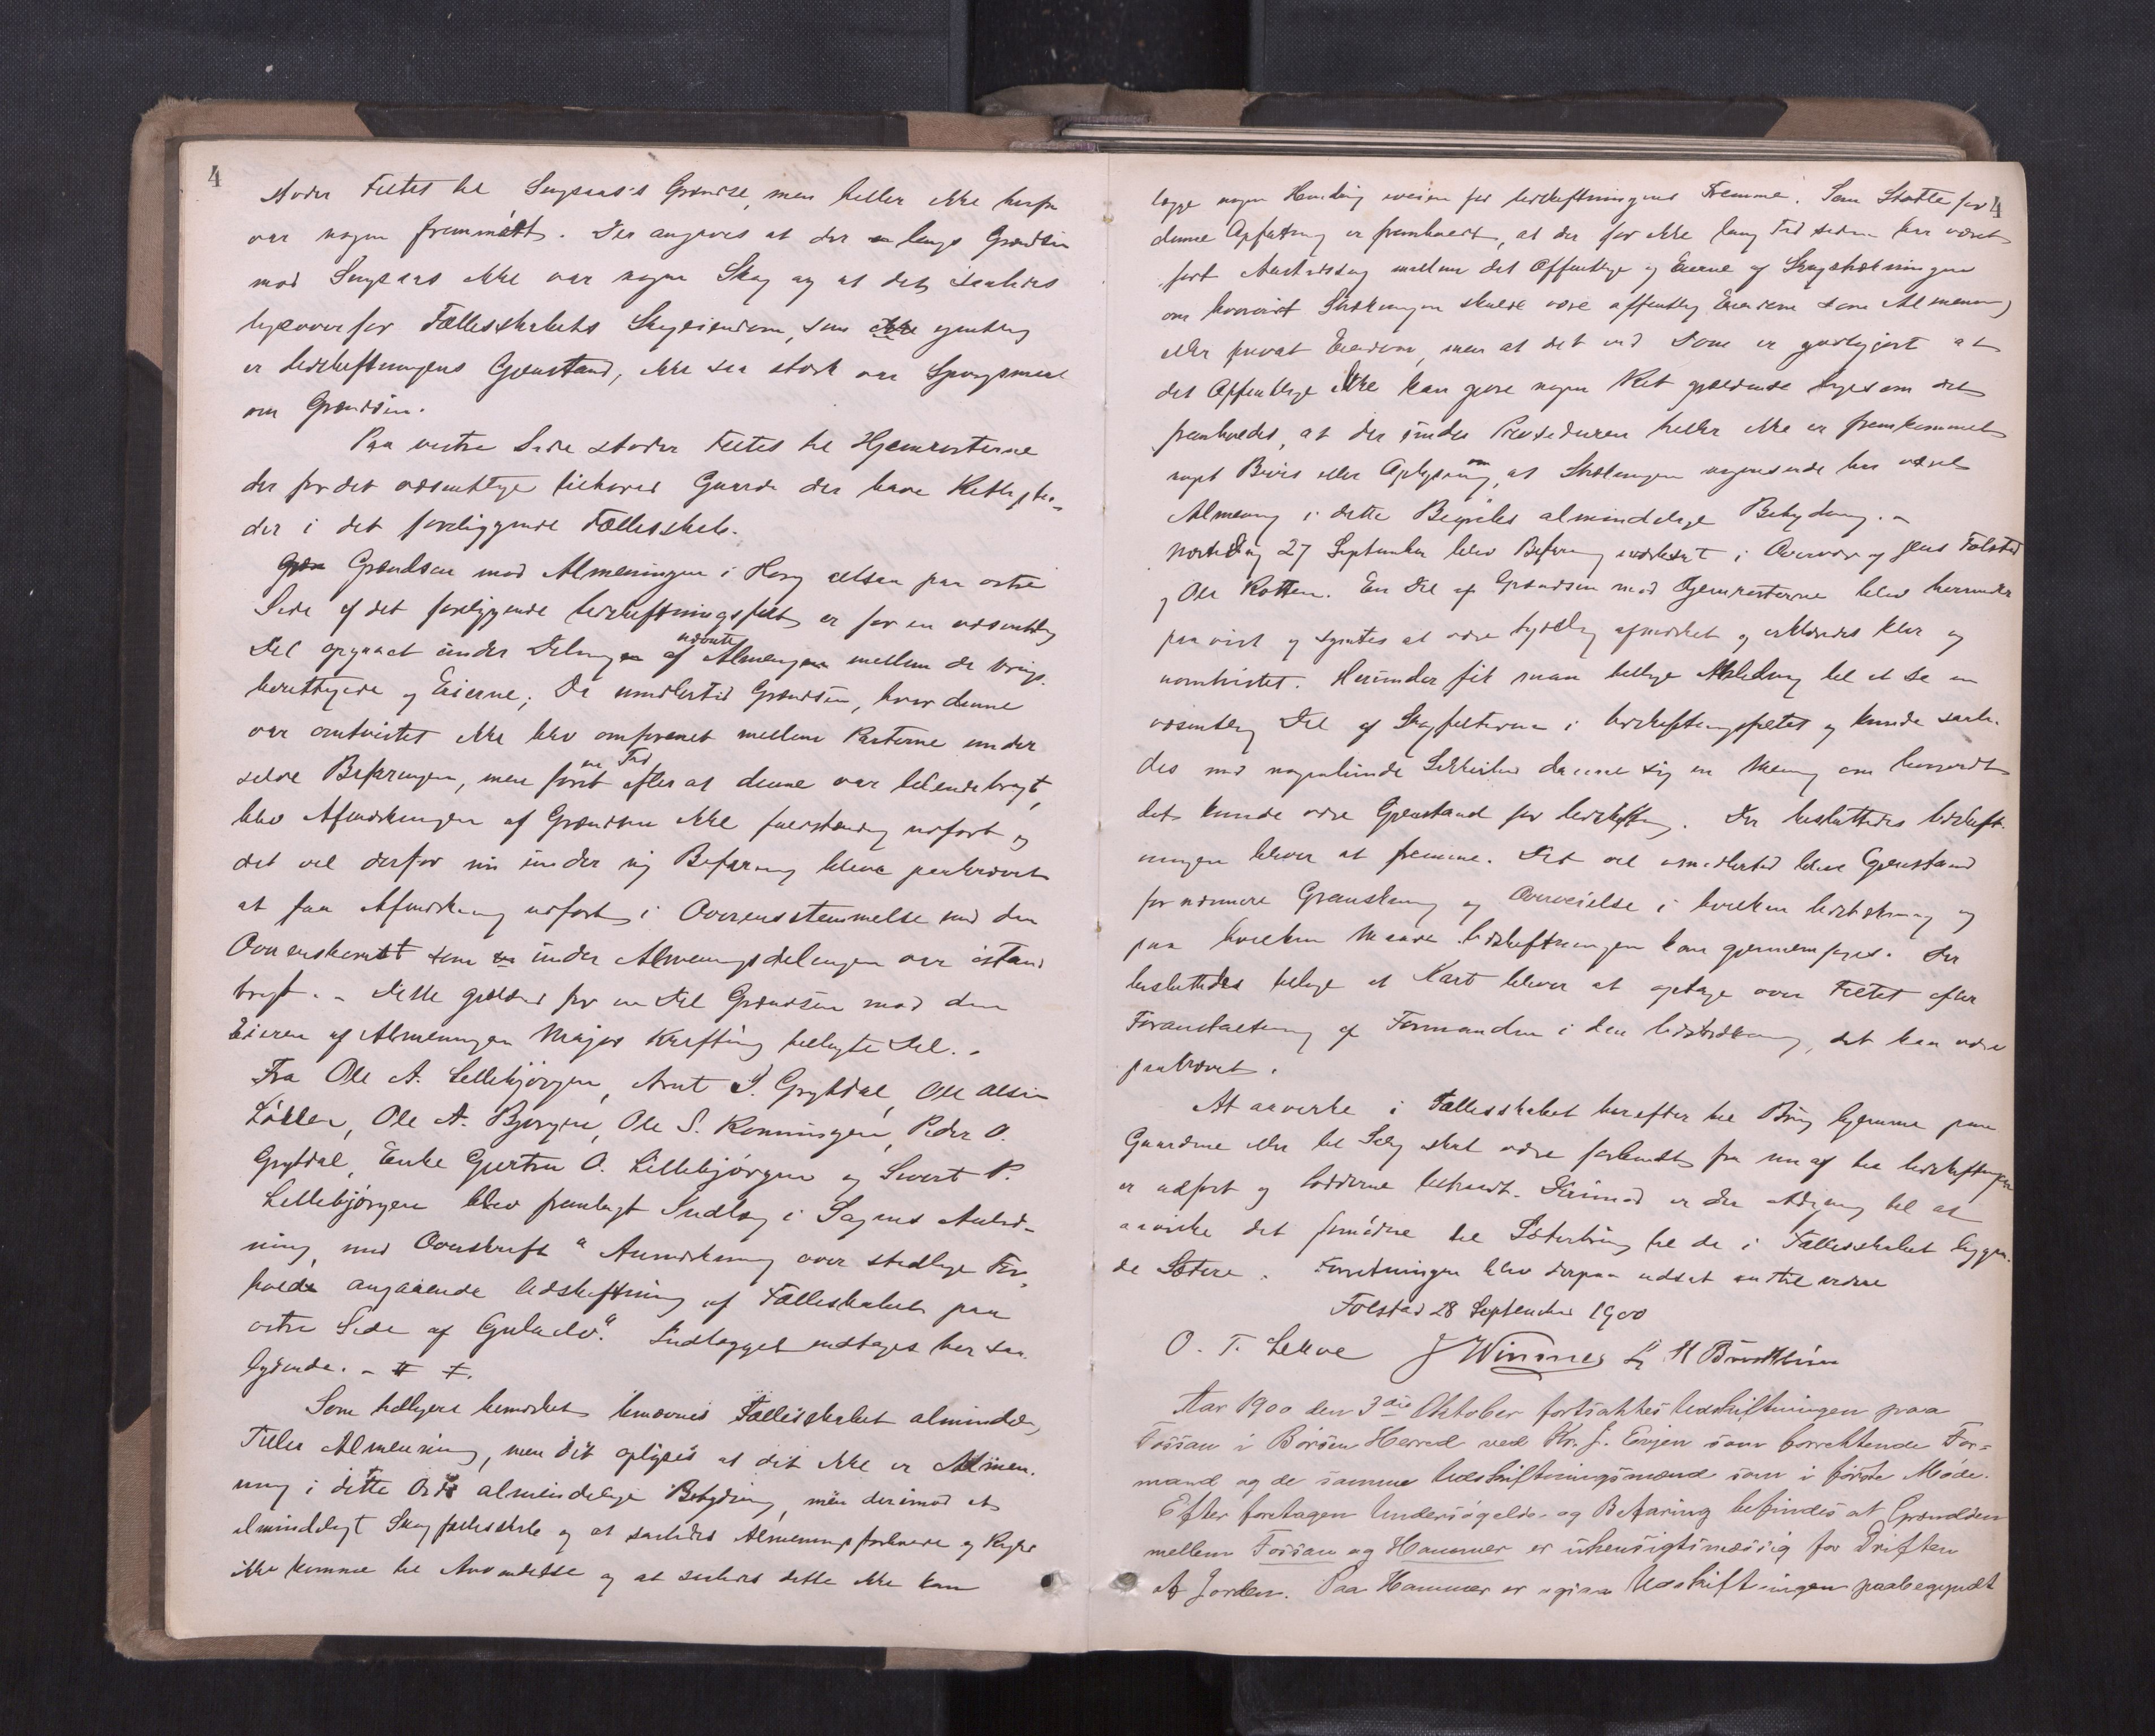 4
støder Feltet til Singsaas's Grændse, men heller ikke herfra
var nogen fremmødt. Der angaves at der langs Grændsen
mod Singsaas ikke var nogen Skog og at det saaledes
ligeoverfor Fællesskabets Skogeiendom, som egentlig
er Udskiftningens Gjenstand, ikke saa stærk var Spørgsmaal
om Grændsen.
Paa vestre Side støder Feltet til Hjemrasterne
der for det væsentlige tilhører Gaarde der have Rettighe-
der i det foreliggende Fællesskab.
Grændsen mod Almeningen i Horg altsaa paa østre
Side af det foreliggende Udskiftningsfelt er for en væsentlig
Del opgaaet under Delingen af nævnte Almening mellem de brugs-
berettigede og Eierne; Da imidlertid Grændsen, hvor denne
var omtvistet ikke blev omforenet mellem Parterne under
selve Befaringen, men først en Tid efter at denne var tilendebragt,
blev Afmærkningen af Grændsen ikke fuldstændig udført og
det vil derfor nu under ny Befaring blive paakrævet
at faa Afmærkning udført i Overensstemmelse med den
Overenskomst som under Almeningsdelingen var istand
bragt. - Dette gjælder for en Del Grændsen mod den
Eieren af Almeningen Major Krefting tillagte Del. -
Fra Ole A. Lillebjørgen, Arnt J. Gryttdal, Ole Olsen
Løkken, Ole A. Bjørgen, Ole S. Rønningen, Peder O.
Gryttdal, Enke Gjertru O. Lillebjørgen og Sivert P.
Lillebjørgen blev fremlagt Indlæg i Sagens Anled-
ning, med Overskrift "Anmerkning over stedlige For-
holde angaaende Udskiftning af Fælleskabet paa
østre Side af Gulaelv." Indlægget indtages her saa-
lydende. - # ‡.
Som tidligere bemærket benævnes Fællesskabet almindelig
Almenning, men det oplyses at det ikke er Almen-
ning i dette Ords almindelige Betydning, men derimod et
almindeligt Skogfællesskab og at saaledes Almenningslovene og Regler
ikke komme til Anvendelse og at saaledes dette ikke kan
4
lægge nogen Hindring iveien for Udskiftningens Fremme. Som Støtte for
denne Opfatning er fremhævet, at der for ikke lang Tid siden har været
ført Rettssag mellem det Offentlige og Eierne af Skogstrækningen
om hvorvidt Strækningen skulde være offentlig Eiendom som Almenning
eller privat Eiendom, men at det ved Dom er godtgjort at
det Offentlige ikke kan gjøre nogen Ret gjældende ligesom det
fremholdes, at der under Proceduren heller ikke er fremkommet
noget Bevis eller Oplysning om, at Strækningen nogensinde har været
Almening i dette Begrebs almindelige Betydning. -
27 September blev Befaring iværksat i Overvær af Jens Folstad
og Ole Kotten. En Del af Grændsen mod Hjemrasterne blev herunder
paavist og syntes at være tydelig afmærket og erklæredes klar og
uomtvistet. Herunder fik man tillige Anledning til at se en
væsentlig Del af Skogfelterne i Udskiftningsfeltet og kunde saale-
des med nogenlunde Sikkerhed danne sig en Mening om hvorvidt
det kunde være Gjenstand for Udskiftning. Der besluttedes Udskift-
ningen bliver at fremme. Det vil imidlertid blive Gjenstand
for nærmere Granskning og Overveielse i hvilken Udstrækning og
paa hvilken Maade Udskiftningen kan gjennemføres. Der
besluttedes tillige at Kart bliver at optage over Feltet efter
Foranstaltning af Formanden i den Udstrækning, det kan være
paakrævet.
At aavirke i Fællesskabet herefter til Brug hjemme paa
Gaardene eller til Salg skal være forbudt fra nu af til Udskiftningen
er udført og Lodderne tiltraadt. Derimod er der Adgang til at
aavirke det fornødne til Sæterbrug til de i Fællesskabet liggen-
de Sætere. Forretningen blev derpaa udsat indtil videre
Folstad 28 September 1900
O. T. Lekve J Winsnes
Aar 1900 den 3die Oktober fortsattes Udskiftningen paa
Fossan i Børsen Herred ved Kr. J. Engen som forrettende For-
mand og de samme Udskiftningsmænd som i første Møde.
Efter foretagen Undersøgelse og Befaring befindes at Grændsen
mellem Fossan og Hammer er uhensigtsmæssig for Driften
af Jorden. Paa Hammer er ogsaa Udskiftningen paabegyndt